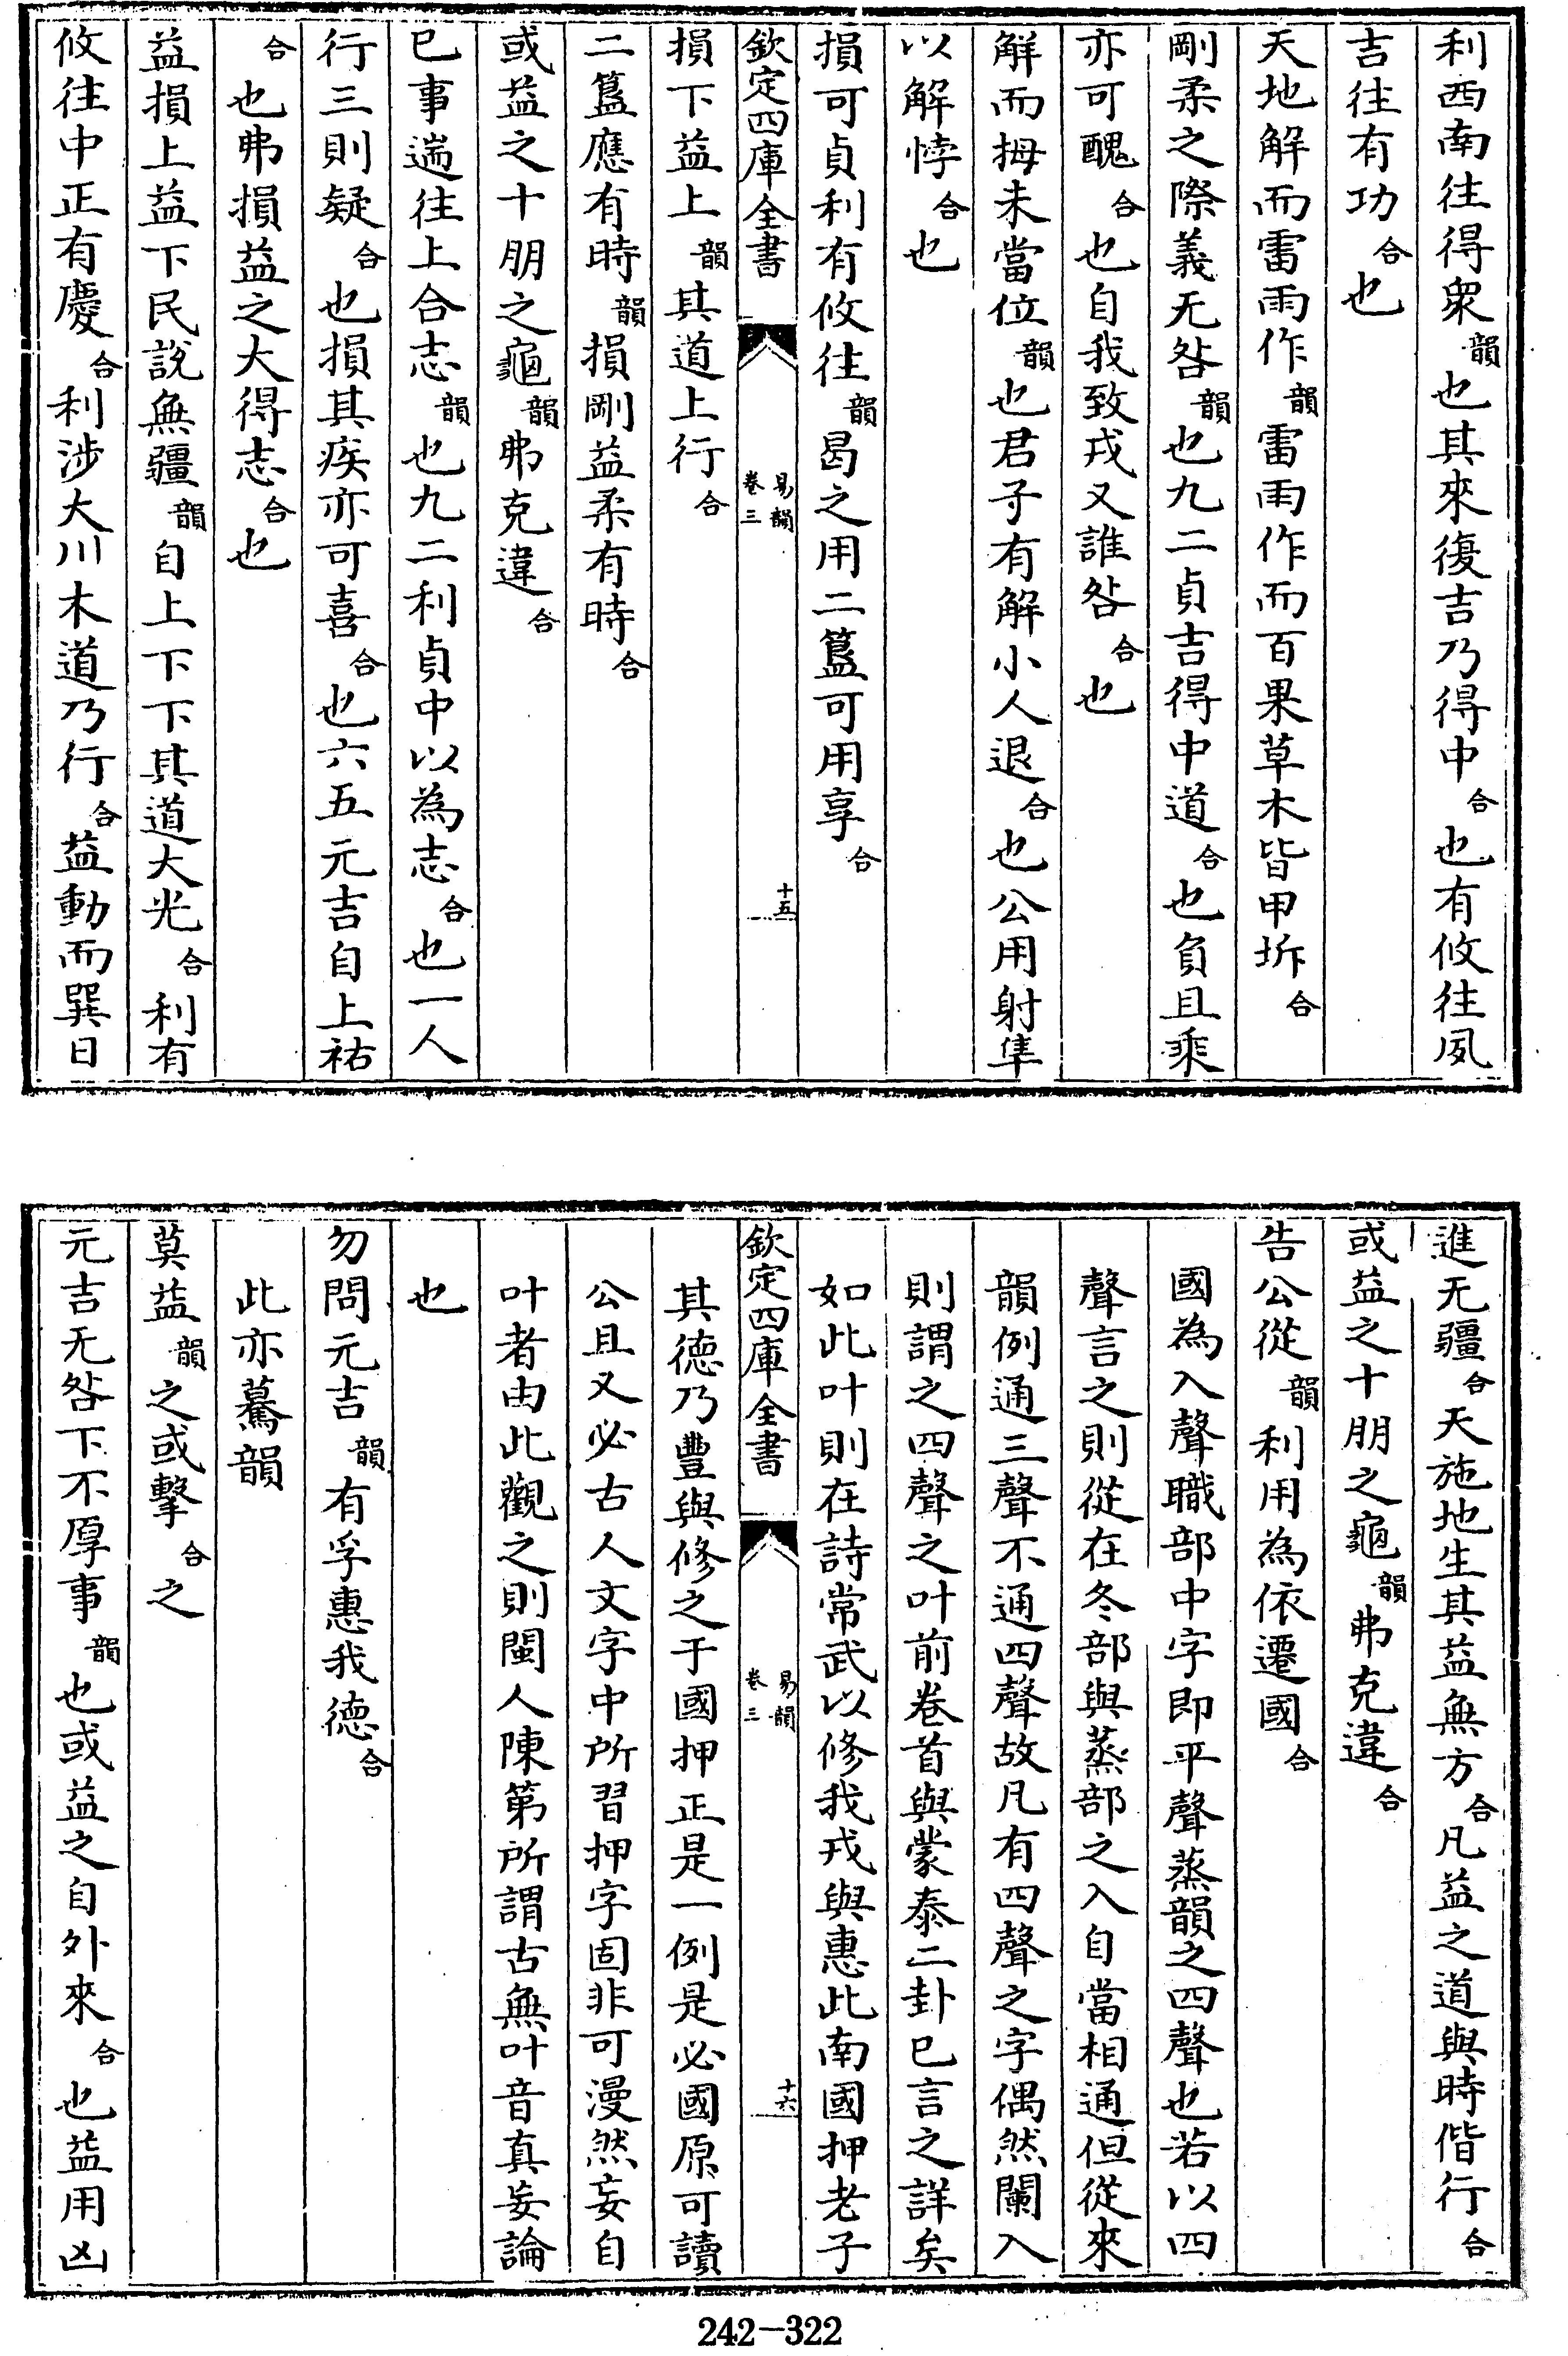 利西南往得衆韻也其來復吉乃得中合也有攸往夙
吉往有功合也
天地解而雷雨作韻雷雨作而百果草木皆甲坼合
剛柔之際義无咎韻也九二貞吉得中道合也負且乘
亦可醜合也自我致戎又誰咎合也
解而拇未當位韻也君子有解小人退合也公用射隼
以解悖合也
損可貞利有攸往韻曷之用二簋可用享合
欽定四庫全書
易韻
卷三
十五
損下益上韻其道上行合
二簋應有時韻損剛益柔有時合
或益之十朋之龜韻弗克違合
已事遄往上合志韻也九二利貞中以為志合也一人
行三則疑合也損其疾亦可喜合也六五元吉自上祐
合也弗損益之大得志合也
益損上益下民說無疆韻自上下下其道大光合利有
攸往中正有慶合利涉大川木道乃行合益動而巽日
進无疆合天施地生其益無方合凡益之道與時偕行合
或益之十朋之龜韻弗克違合
告公從韻利用為依遷國合
國為入聲職部中字即平聲蒸韻之四聲也若以四
聲言之則從在冬部與蒸部之入自當相通但從來
韻例通三聲不通四聲故凡有四聲之字偶然闌入
則謂之四聲之叶前卷首與蒙泰二卦已言之詳矣
如此叶則在詩常武以修我戎與惠此南國押老子
欽定四庫全書
易韻
卷三
十六
其德乃豐與修之于國押正是一例是必國原可讀
公且又必古人文字中所習押字固非可漫然妄自
叶者由此觀之則閩人陳第所謂古無叶音真妄論
也
勿問元吉韻有孚惠我德合
此亦驀韻
莫益韻之或擊合之
元吉无咎下不厚事韻也或益之自外來合也益用凶
242-322